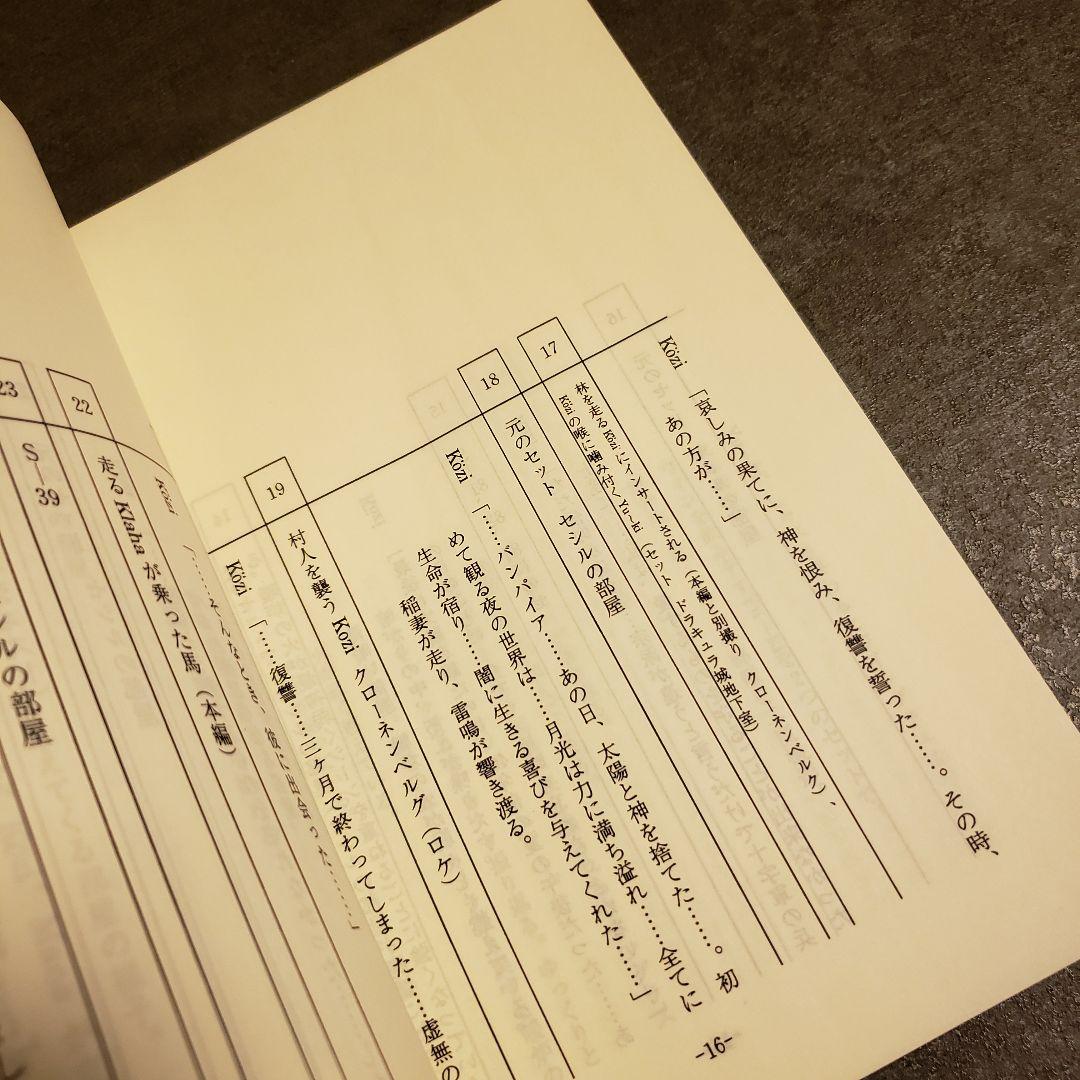 Közi 「哀しみの果てに、神を恨み、復讐を誓った……。その時、
あの方が……」
17
林を走る Közi にインサートされる（本編と別撮り クローネンベルク）、
Közi の喉に噛み付く Yu~ki（セット ドラキュラ城地下室）
18
元のセット セシルの部屋
Közi 「……バンパイア……あの日、太陽と神を捨てた……。初
めて観る夜の世界は……月光は力に満ち溢れ……全てに
生命が宿り……闇に生きる喜びを与えてくれた……」
稲妻が走り、雷鳴が響き渡る。
19
村人を襲う Közi クローネンベルグ（ロケ）
Közi 「……復讐……三ヶ月で終わってしまった……虚無の
-16-
Közi 「……そんなとき、彼に出会った……」
22
走る Klaha が乗った馬（本編）
23
S－39
ルの部屋